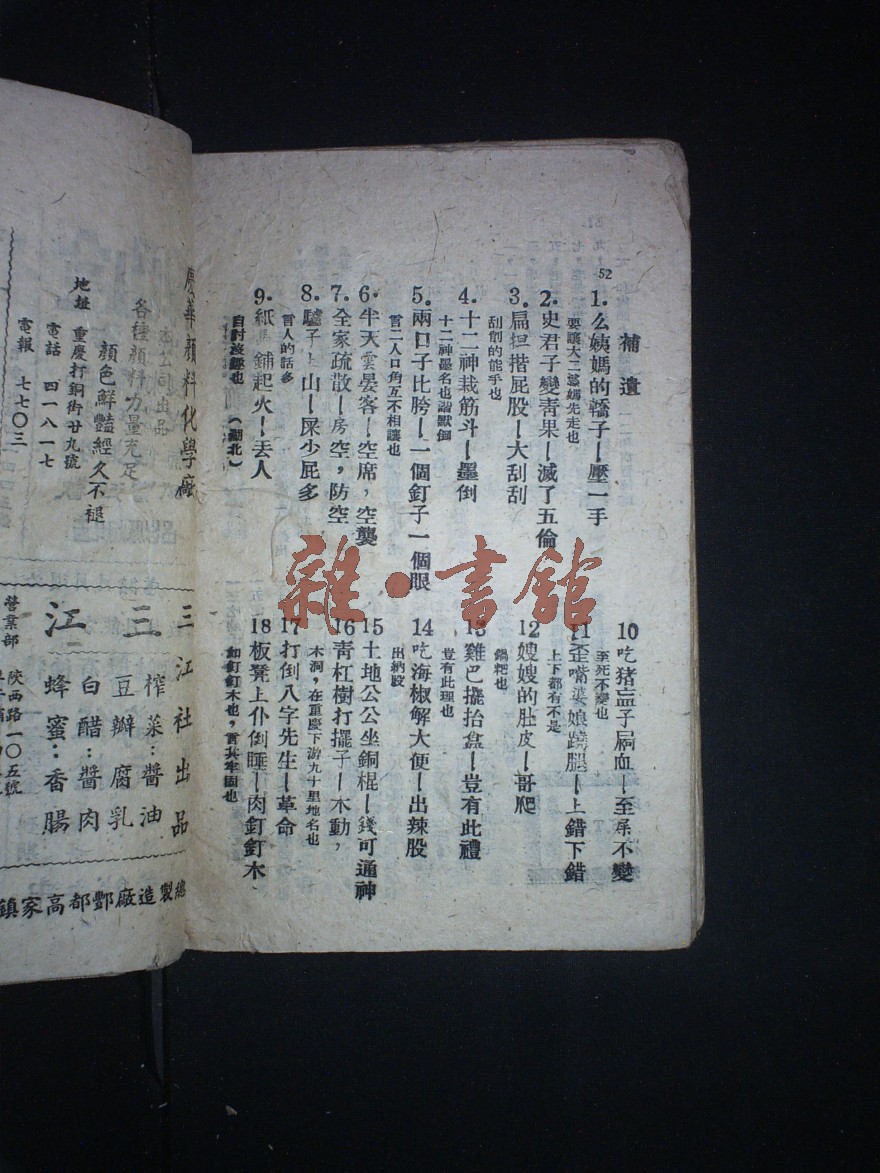 52
補遺
1．么姨媽的轎子—壓一手
要讓大二姨媽先走也
2．史君子變青果—滅了五倫
3．扁担揩屁股—大刮刮
刮削的能手也
4．十二神栽筋斗—墨倒
十二神墨名也諧默倒
5．兩口子比胯—一個釘子一個眼
言二人口角互不相讓也
6．半天雲晏客—空席，空襲
7．全家疏散—房空，防空
8．驢子上山—屎少屁多
言人的話多
9．紙馬鋪起火—丢人
自討沒趣也 （湖北）
10吃猪盂子屙血—至屙不變
至死不變也
11歪嘴婆娘蹺腿—上錯下錯
上下都有不是
12嫂嫂的肚皮—哥爬
鍋粑也
13雞巴擺抬盒—豈有此禮
豈有此理也
14吃海椒解大便—出辣股
出納股
15土地公公坐銅棍—錢可通神
16青杠樹打擺子—木動，
木洞，在重慶下游九十里地名也
17打倒八字先生—革命
18板凳上仆倒睡—肉釘釘木
如釘釘木也，言其牢固也
雜·書館
慶華顏料化學廠
本公司出品
各種顏料力量充足
顏色鮮豔經久不褪
地址 重慶打銅街廿九號
電話 四一八一七
電報 七七〇三
三江社出品
榨菜：醬油
三江
豆瓣腐乳
白醋：醬肉
蜂蜜：香腸
營業部 陝西路一〇五號
總製造廠酆都高家鎮